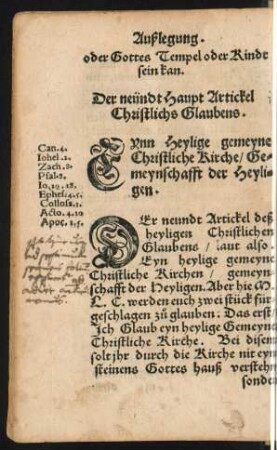 Außlegung.
oder Gottes Tempel oder Kindt
sein kan.
Der neündt Haupt Artickel
Christlichs Glaubens.
Eynn Heylige gemeyne
Christliche Kirche/ Ge-
meynschafft der Heyli-
gen.
Can. 4.
Iohel. 2.
Zach. 8.
Psal. 2.
Io. 10. 18.
Ephes. 4. 5.
Collos. 1.
Acto. 4. 20
Apoc. 1. 5.
Der neundt Artickel deß
heyligen Christlichen
Glaubens/ laut also.
Eyn heylige gemeyne
Christliche Kirchen/ gemeyn
schafft der Heyligen. Aber hie M.
L. C. werden euch zwei stück für-
geschlagen zů glauben: Das erst/
Ich Glaub eyn heylige Gemeyne
Christliche Kirche. Bei disem
solt jhr durch die Kirche nit eyn
steinens Gottes hauß verstehn
sonder